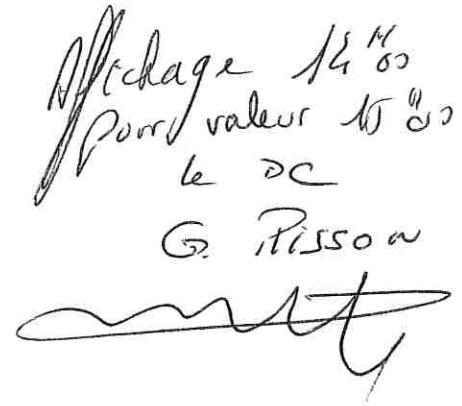 Affichage 14H00
pour valeur 15H00
le DC
G. PISSON